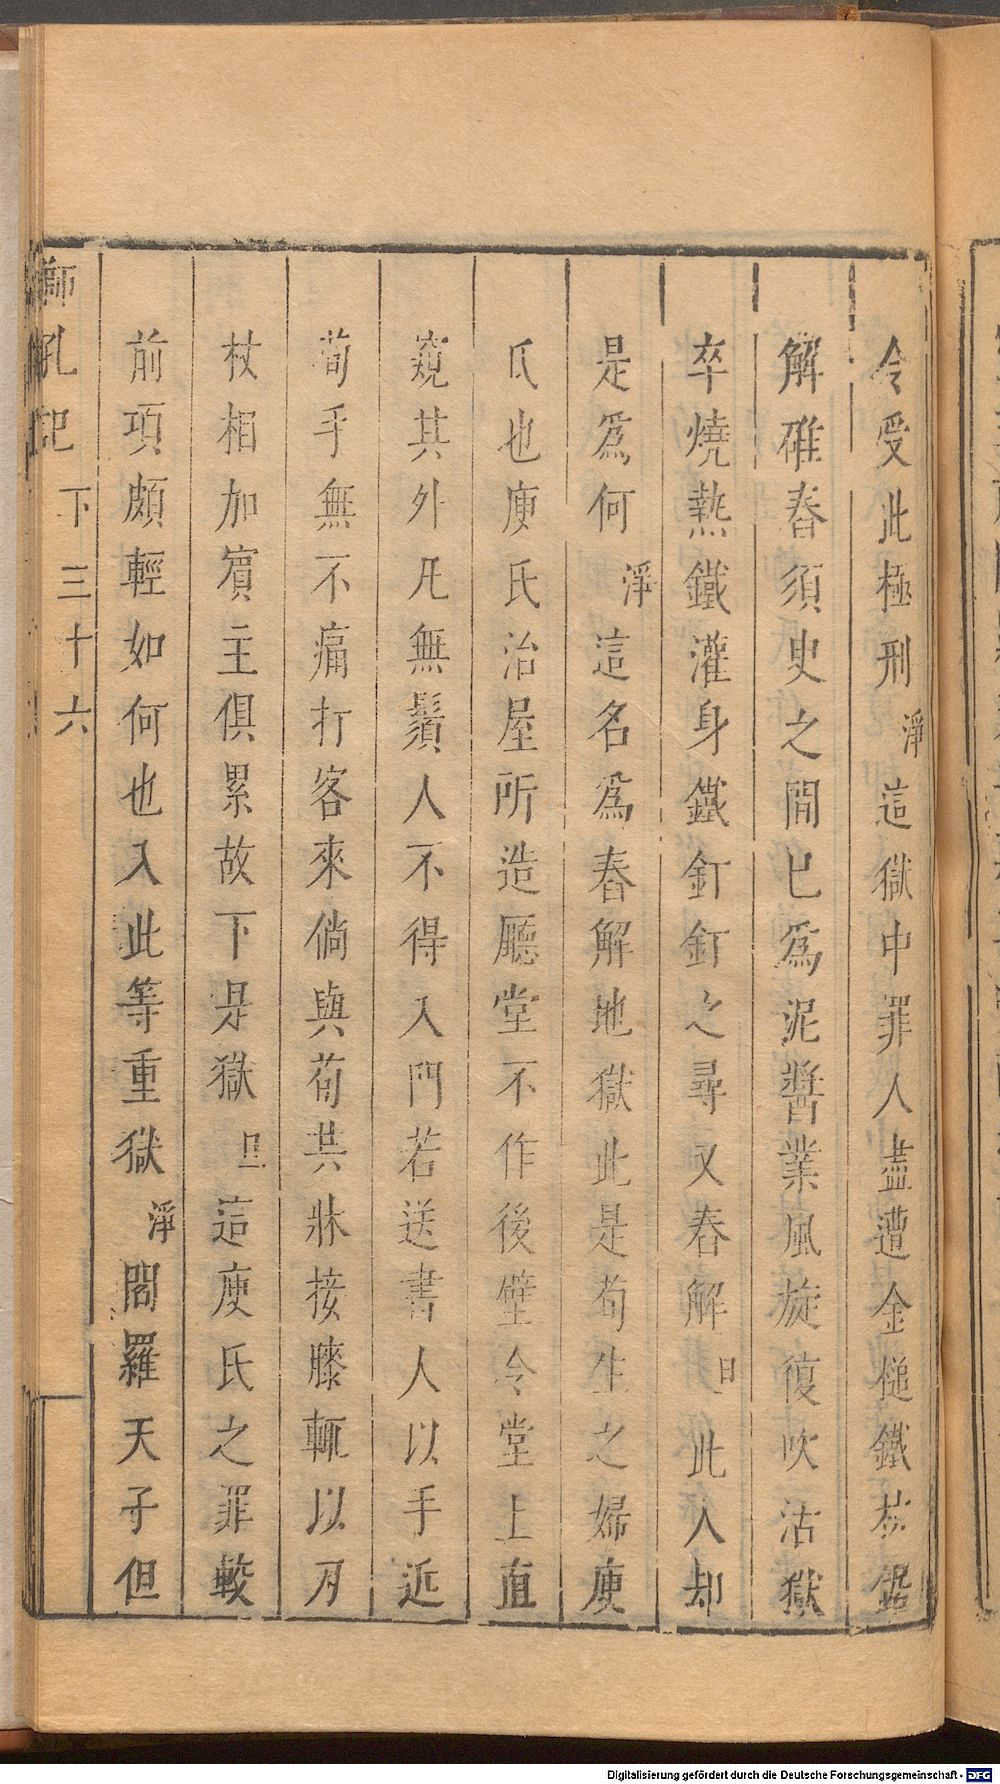 今受此極刑淨這獄中罪人盡遭金槌鐵杖鋸
解碓舂須㬰之間已爲泥醬業風旋復吹活獄
卒燒熱鐵灌身鐵釘釘之尋又舂解旦此人却
是爲何淨這名爲舂解地獄此是荀生之婦庾
氏也庾氏治屋所造廳堂不作後壁令堂上直
窺其外凡無鬚人不得入門若送書人以手近
荀手無不痛打客來倘與荀共牀接膝輒以刀
杖相加賓主俱累故下是獄旦這庾氏之罪較
前項頗輕如何也入此等重獄淨閻羅天子但
獅吼記 下 三十六
Digitalisierung gefördert durch die Deutsche Forschungsgemeinschaft - DFG